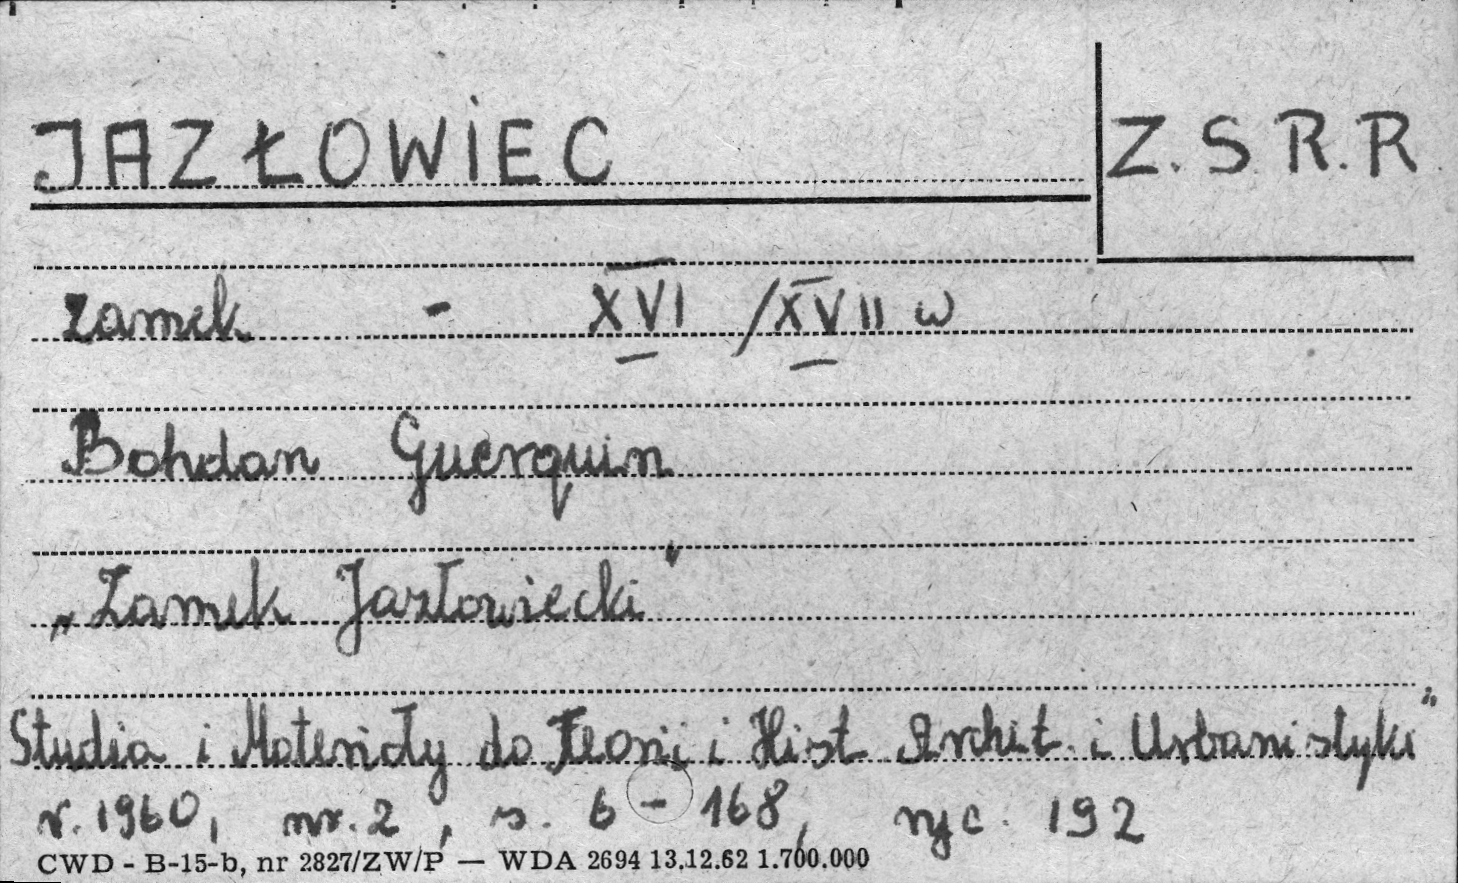 JAZŁOWIEC
Z.S.R.R.
zamek - XVI/XVII w
Bohdan Guerquin
„Zamek Jazłowiecki"
Studia i Materiały do Teorii i Hist Archit. i Urbanistyki"
r. 1960, nr. 2, s. 6 - 168, ryc. 192
CWD - B-15-b, nr 2827/ZW/P — WDA 2694 13.12.62 1.700.000